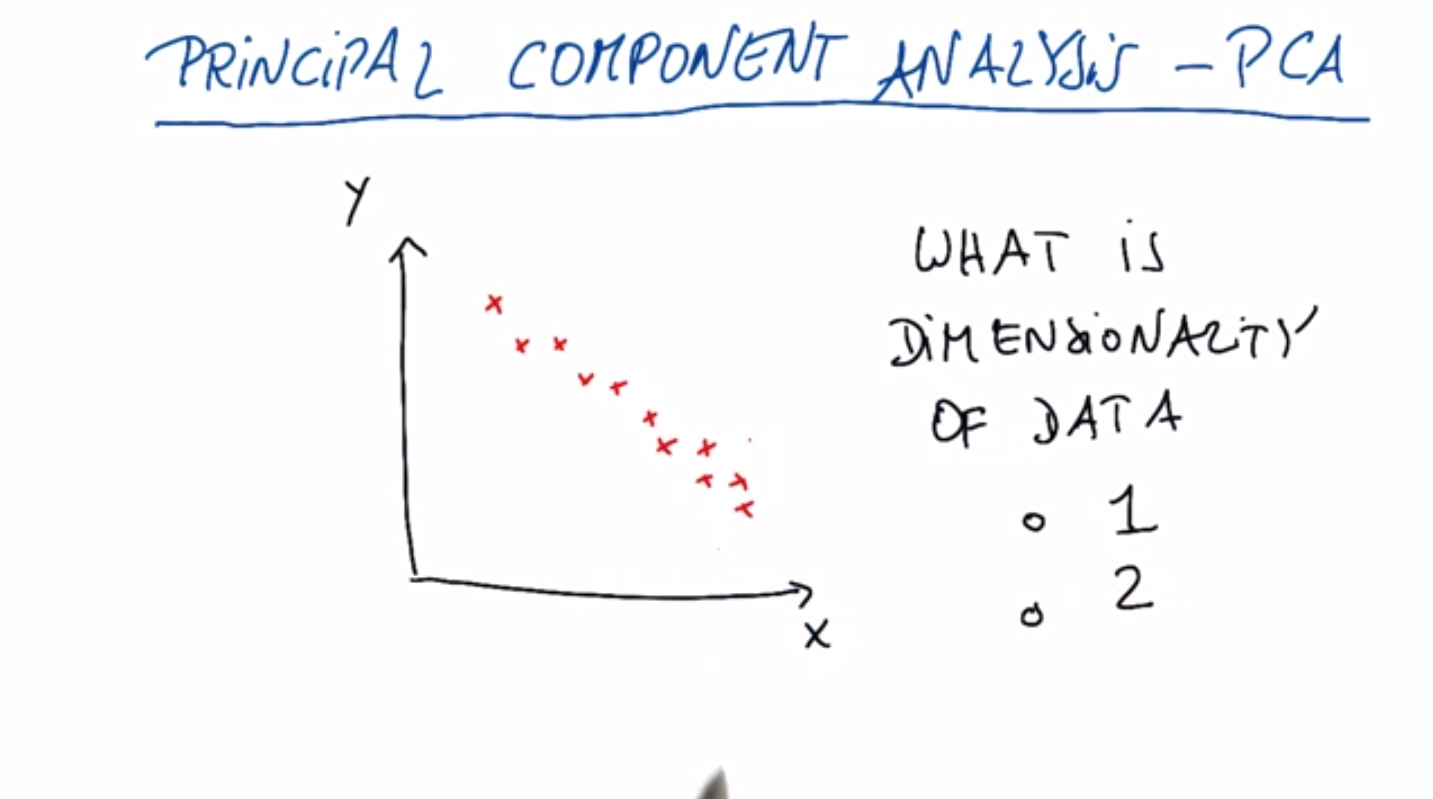 PRINCIPAL COMPONENT ANALYSIS - PCA
Y
WHAT IS
DIMENSIONALTY
OF DATA
1
2
X